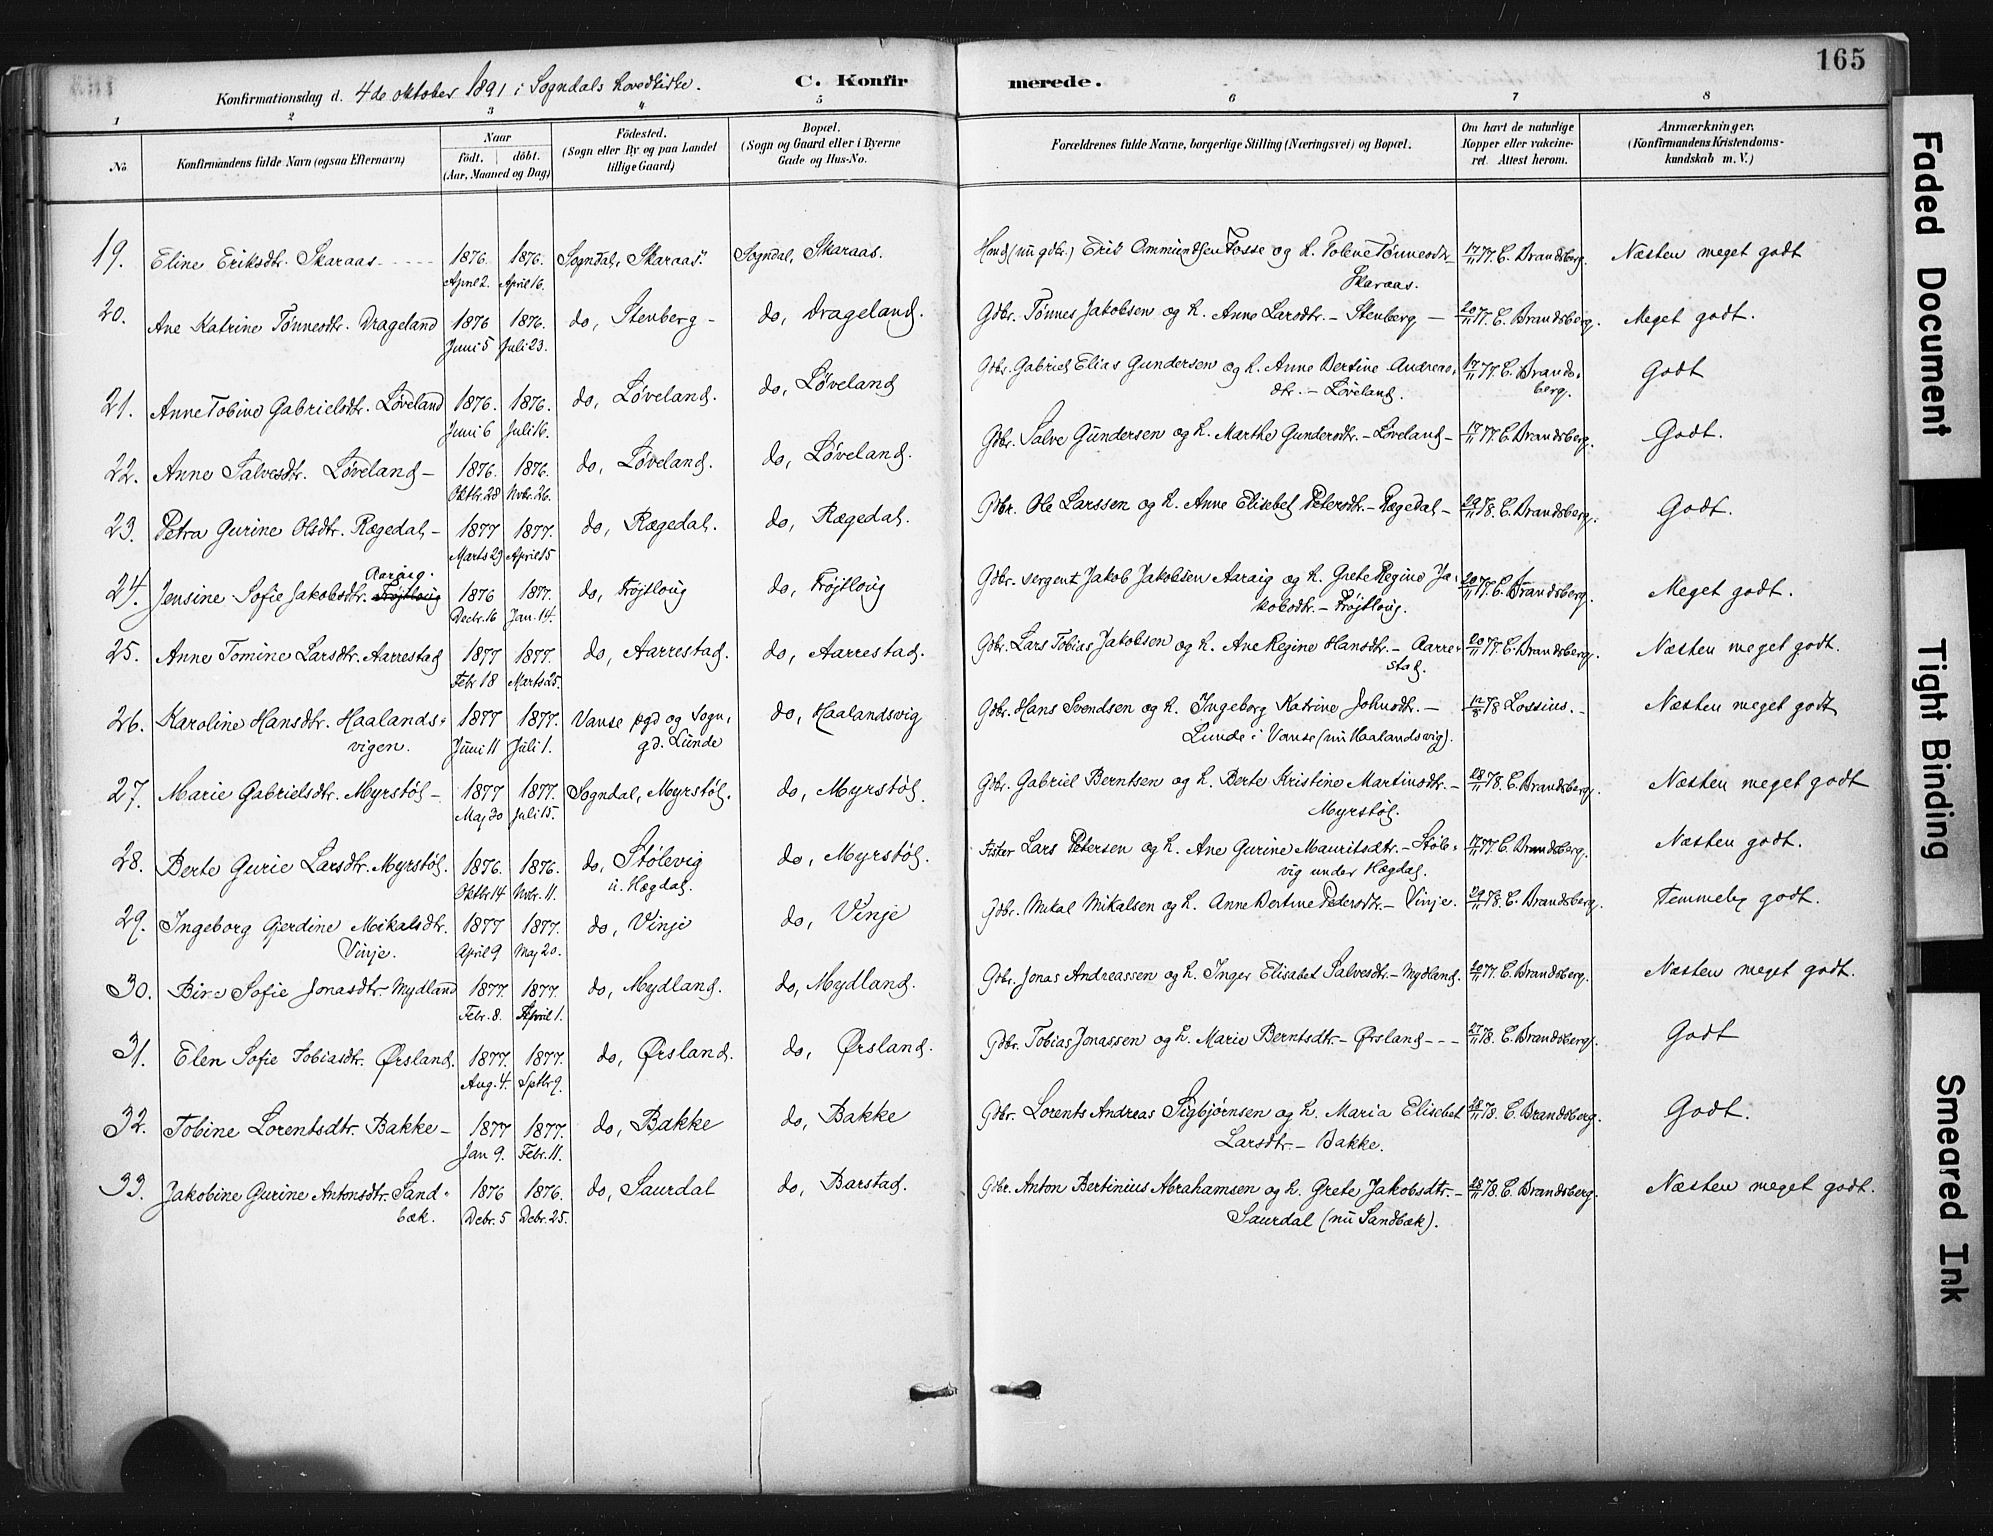 165
Konfirmationsdag d. 4de oktober 1891 i Sogndals hovedkirke.
C. Konfir merede.
1 2 3 4 5 6 7 8
No
Konfirmandens fulde Navn (ogsaa Efternavn)
Naar
födt. döbt.
(Aar, Maaned og Dag)
Födested.
(Sogn eller By og paa Landet
tillige Gaard)
Bopæl.
(Sogn og Gaard eller i Byerne
Gade og Hus-No.
Forældrenes fulde Navne, borgerlige Stilling (Næringsvei) og Bopæl.
Om havt de naturlige
Kopper eller vakcine-
ret. Attest herom.
Anmærkninger.
(Konfirmandens Kristendoms-
kundskab m. V.)
19. Eline Eriksdtr. Skaraas 1876. 1876. Sogndal, Skaraas. Sogndal, Skaraas. Hmd (nu gdbr.) Erik Ommundsen Fosse og h. Tolene Tønnesdtr. 17/11 77. E. Brandsberg. Næsten meget godt
April 2. April 16. Skaraas.
20. Ane Katrine Tønnesdtr. Drageland 1876 1876. do, Stenberg – do, Drageland. Gdbr. Tønnes Jakobsen og h. Anne Larsdtr. – Stenberg – 20/11 77. E. Brandsberg. Meget godt.
Juni 5 Juli 23.
21. Anne Tobine Gabrielsdtr. Løveland 1876. 1876. do, Løveland. do, Løveland Gdbr. Gabriel Elias Gundersen og h. Anne Bertine Andreas- 17/11 77. E. Brands- Godt
Juni 6 Juli 16. dtr. – Løveland. berg.
22. Anne Salvesdtr. Løveland – 1876. 1876. do, Løveland. do, Løveland. Gdbr. Salve Gundersen og h. Marthe Gundersdtr. – Løveland – 17/11 77. E. Brandsberg. Godt.
Oktbr. 28 Nvbr. 26.
23. Petra Gurine Olsdtr. Rægedal – 1877 1877. do, Rægedal. do, Rægedal. Gdbr. Ole Larssen og h. Anne Elisebet Petersdtr. – Rægedal – 29/11 78. E. Brandsberg. Godt.
Marts 29 April 15
24. Jensine Sofie Jakobsdtr. Trøjtlovig Aaraig. 1876 1877. do, Frøjtlovig do, Frøjtlovig Gdbr. sergent Jakob Jakobsen Aaraig og h. Grete Regine Ja- 20/11 77. E. Brandsberg. Meget godt.
Decbr. 16 Jan. 14. kobsdtr. – Frøjtlovig.
25. Anne Tomine Larsdtr. Aarrestad 1877 1877. do, Aarrestad. do, Aarrestad. Gdbr. Lars Tobias Jakobsen og h. Ane Regine Hansdtr. – Aarre- 20/11 77 E. Brandsberg. Næsten meget godt.
Febr 18 Marts 25. stad.
26. Karoline Hansdtr. Haalands- 1877 1877. Vanse pgd og Sogn, do, Haalandsvig Gdbr. Hans Svendsen og h. Ingeborg Katrine Johnsdtr. – 12/8 78 Lossius. – Næsten meget godt
vigen. Juni 11 Juli 1. gd. Lunde Lunde i Vanse (nu Haalandsvig).
27. Marie Gabrielsdtr. Myrstøl – 1877 1877. Sogndal, Myrstøl. do, Myrstøl. Gdbr. Gabriel Berntsen og h. Berte Kristine Martinsdtr. – 28/11 78. E. Brandsberg. Næsten meget godt
Maj 30 Juli 15. Myrstøl.
28. Berte Gurie Larsdtr. Myrstøl. 1876. 1876. do, Stølevig do, Myrstøl. Fisker Lars Petersen og h. Ane Gurine Mauritsdtr. – Støle- 17/11 77. E. Brandsberg. Næsten godt.
Oktbr 14 Nvbr. 11. u. Hægdal. vig under Hægdal.
29. Ingeborg Gjerdine Mikalsdtr. 1877 1877. do, Vinje do, Vinje Gdbr. Mikal Mikalsen og h. Anne Bertine Petersdtr. – Vinje. 29/11 78. E. Brandsberg. Temmelig godt.
Vinje. April 9 Maj 20.
30. Bire Sofie Jonasdtr. Mydland 1877. 1877. do, Mydland. do, Mydland. Gdbr. Jonas Andreassen og h. Inger Elisabet Salvesdtr. – Mydland. 20/11 77. E. Brandsberg. Næsten meget godt.
Febr. 8. April 1.
31. Elen Sofie Tobiasdtr. Ørsland. 1877. 1877. do, Ørsland. do, Ørsland. Gdbr. Tobias Jonassen og h. Marie Berntsdtr. – Ørsland – – – 27/11 78. E. Brandsberg. Godt
Aug. 4. Sptbr 9.
32. Tobine Lorentsdtr. Bakke – 1877 1877. do, Bakke do, Bakke Gdbr. Lorents Andreas Sigbjørnsen og h. Maria Elisebet 28/11 78. E. Brandsberg. Godt.
Jan 9. Febr. 11. Larsdtr. – Bakke.
33. Jakobine Gurine Antonsdtr. Sand- 1876 1876. do, Saurdal do, Barstad. Gdbr. Anton Bertinius Abrahamsen og h. Grete Jakobsdtr. – 28/11 78. E. Brandsberg. Næsten meget godt.
bæk. Debr. 5 Debr. 25. Saurdal (nu Sandbæk).
Faded Document
Tight Binding
Smeared Ink